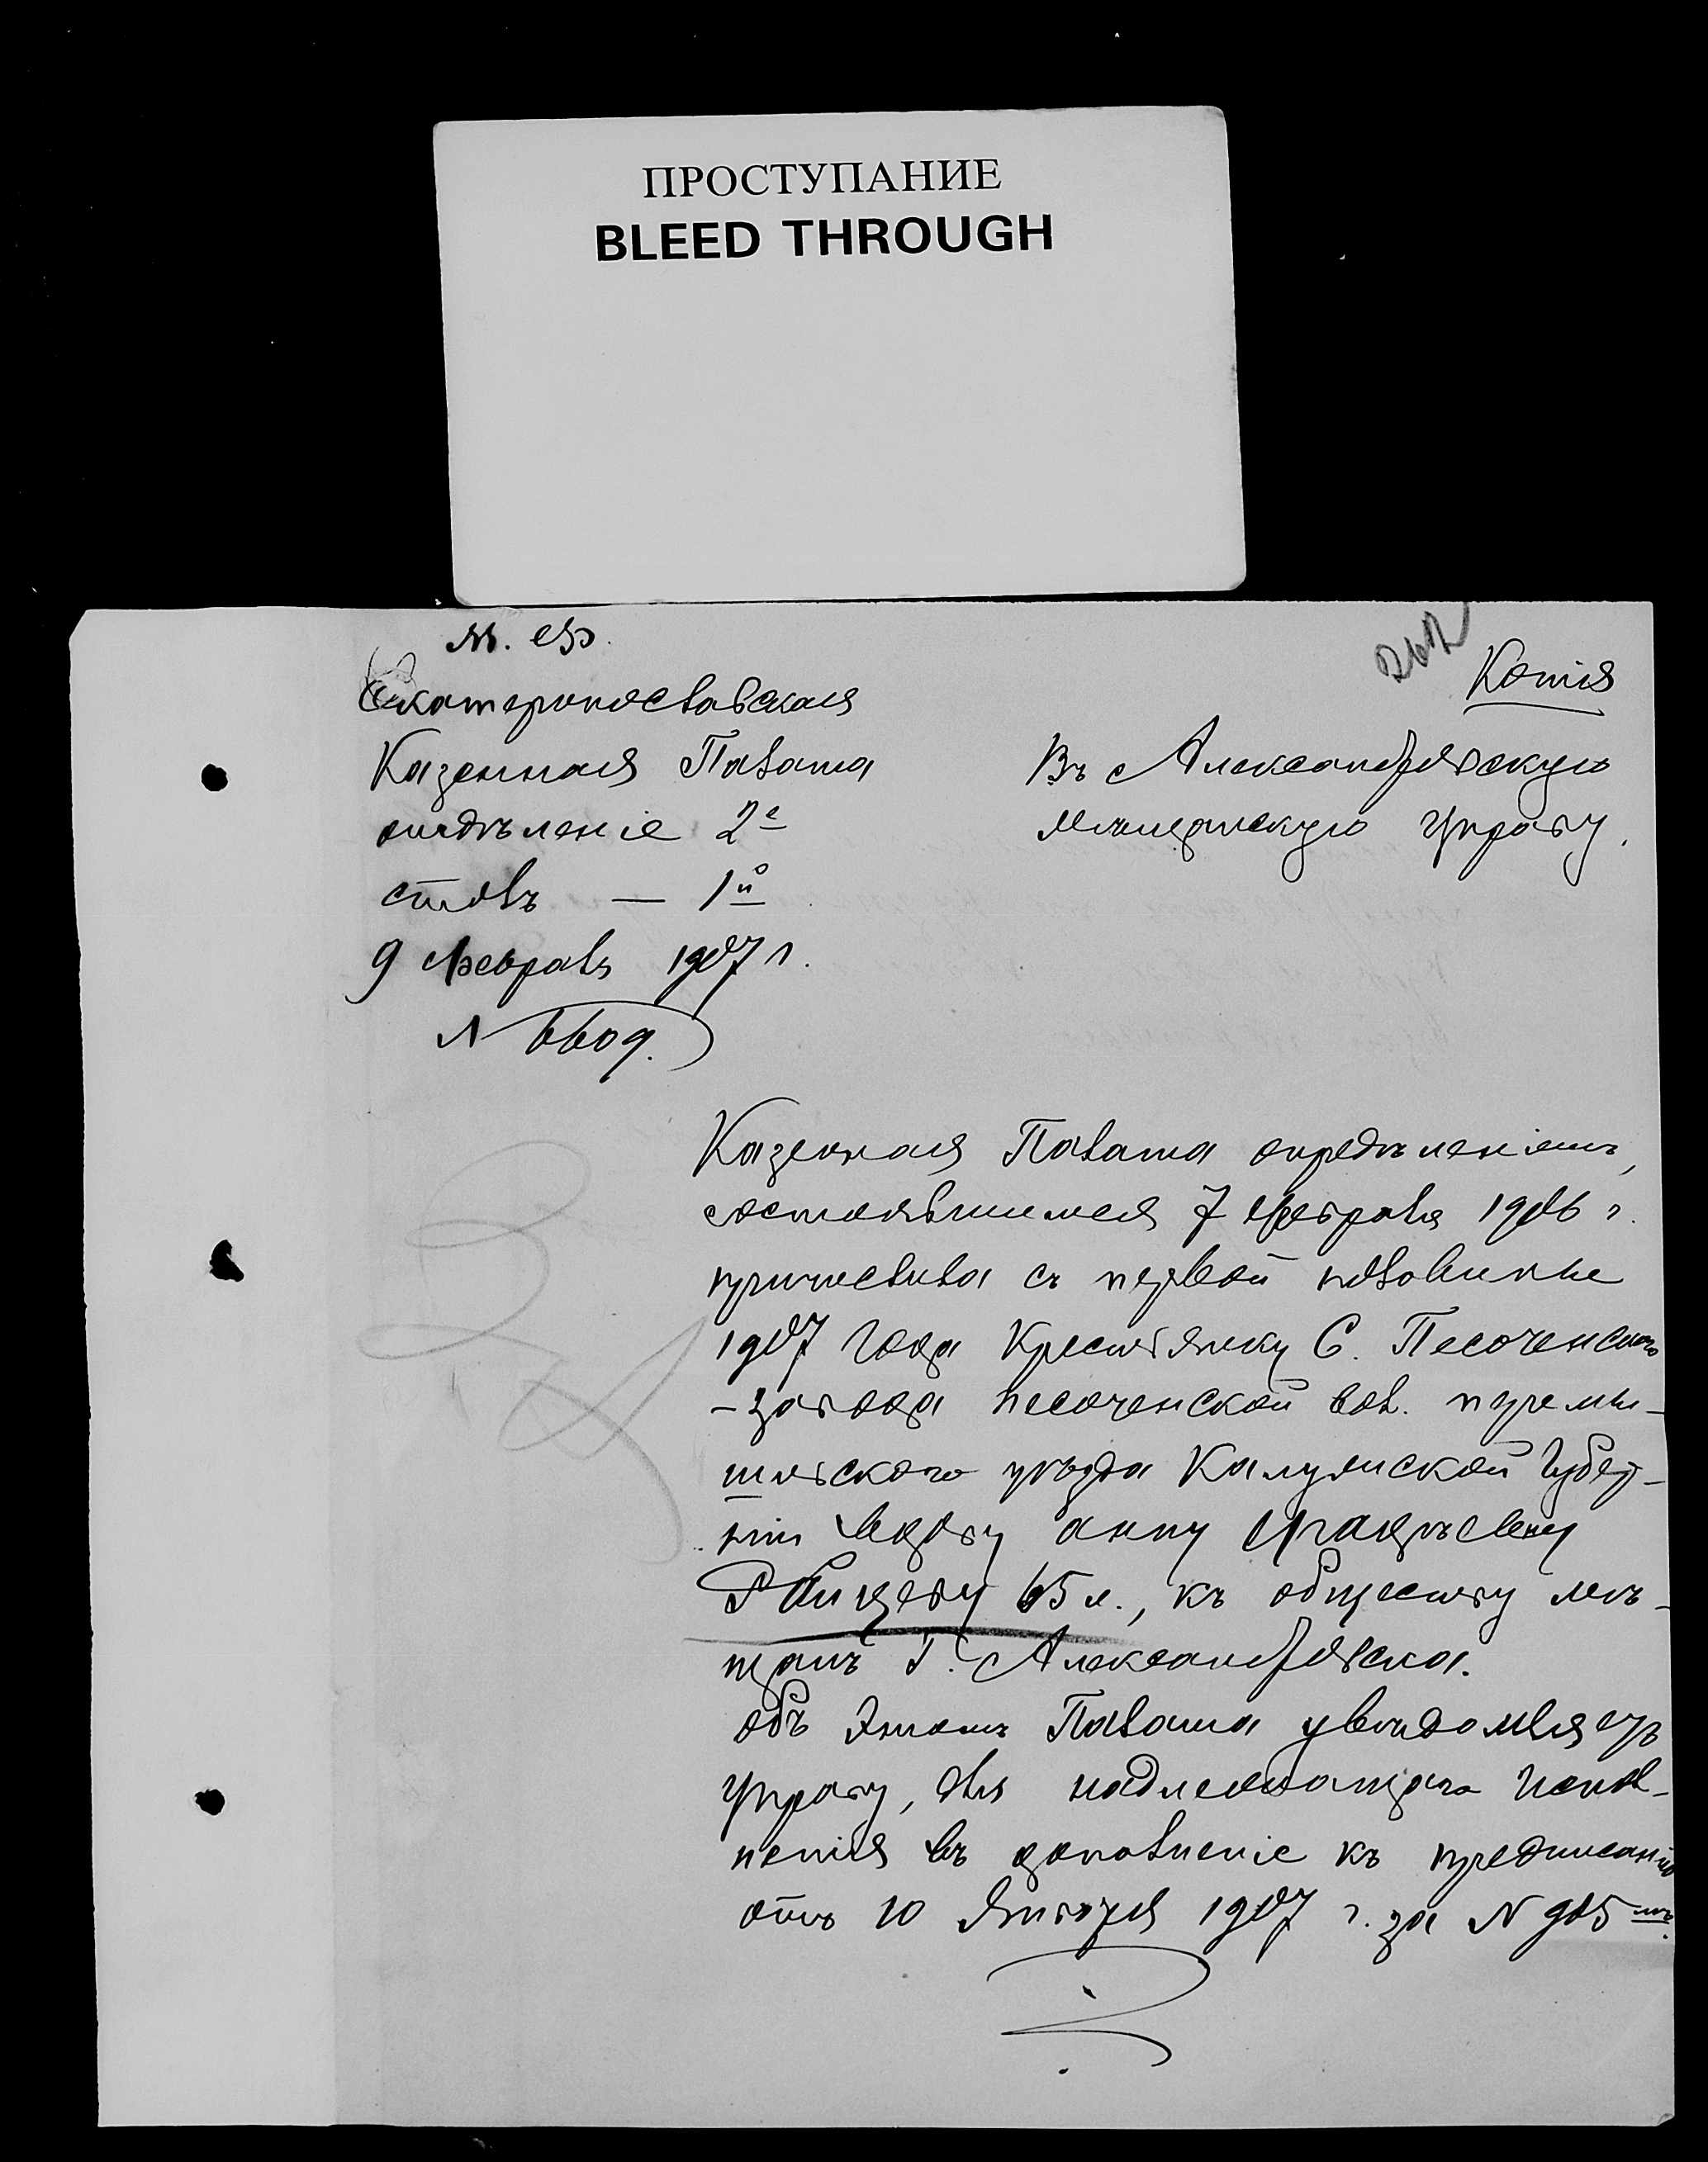 ПРОСТУПАНИЕ
BLEED THROUGH
М.
Копія
Екатеринославская
Казенная Палата
отдѣленіе 2е
столъ — 1й
9 февраля 1907 г.
N 6609.
Въ Александровскую
мѣщанскую управу.
Казенная Палата опредѣленіемъ,
состоявшимся 7 февраля 1906 г.
причислила съ первой половины
1907 года Крестьянку С. Песоченскаго
-завода песоченской вол. перемы-
шльскаго уѣзда Калужской Губер-
ніи вдову Анну
65 л., къ обществу мѣ-
щанъ г. Александровска.
объ этомъ Палата увѣдомляетъ
управу, для надлежащаго испол-
ненія въ дополненіе къ предписанію
отъ 10 Января 1907 г. за N 905мъ.